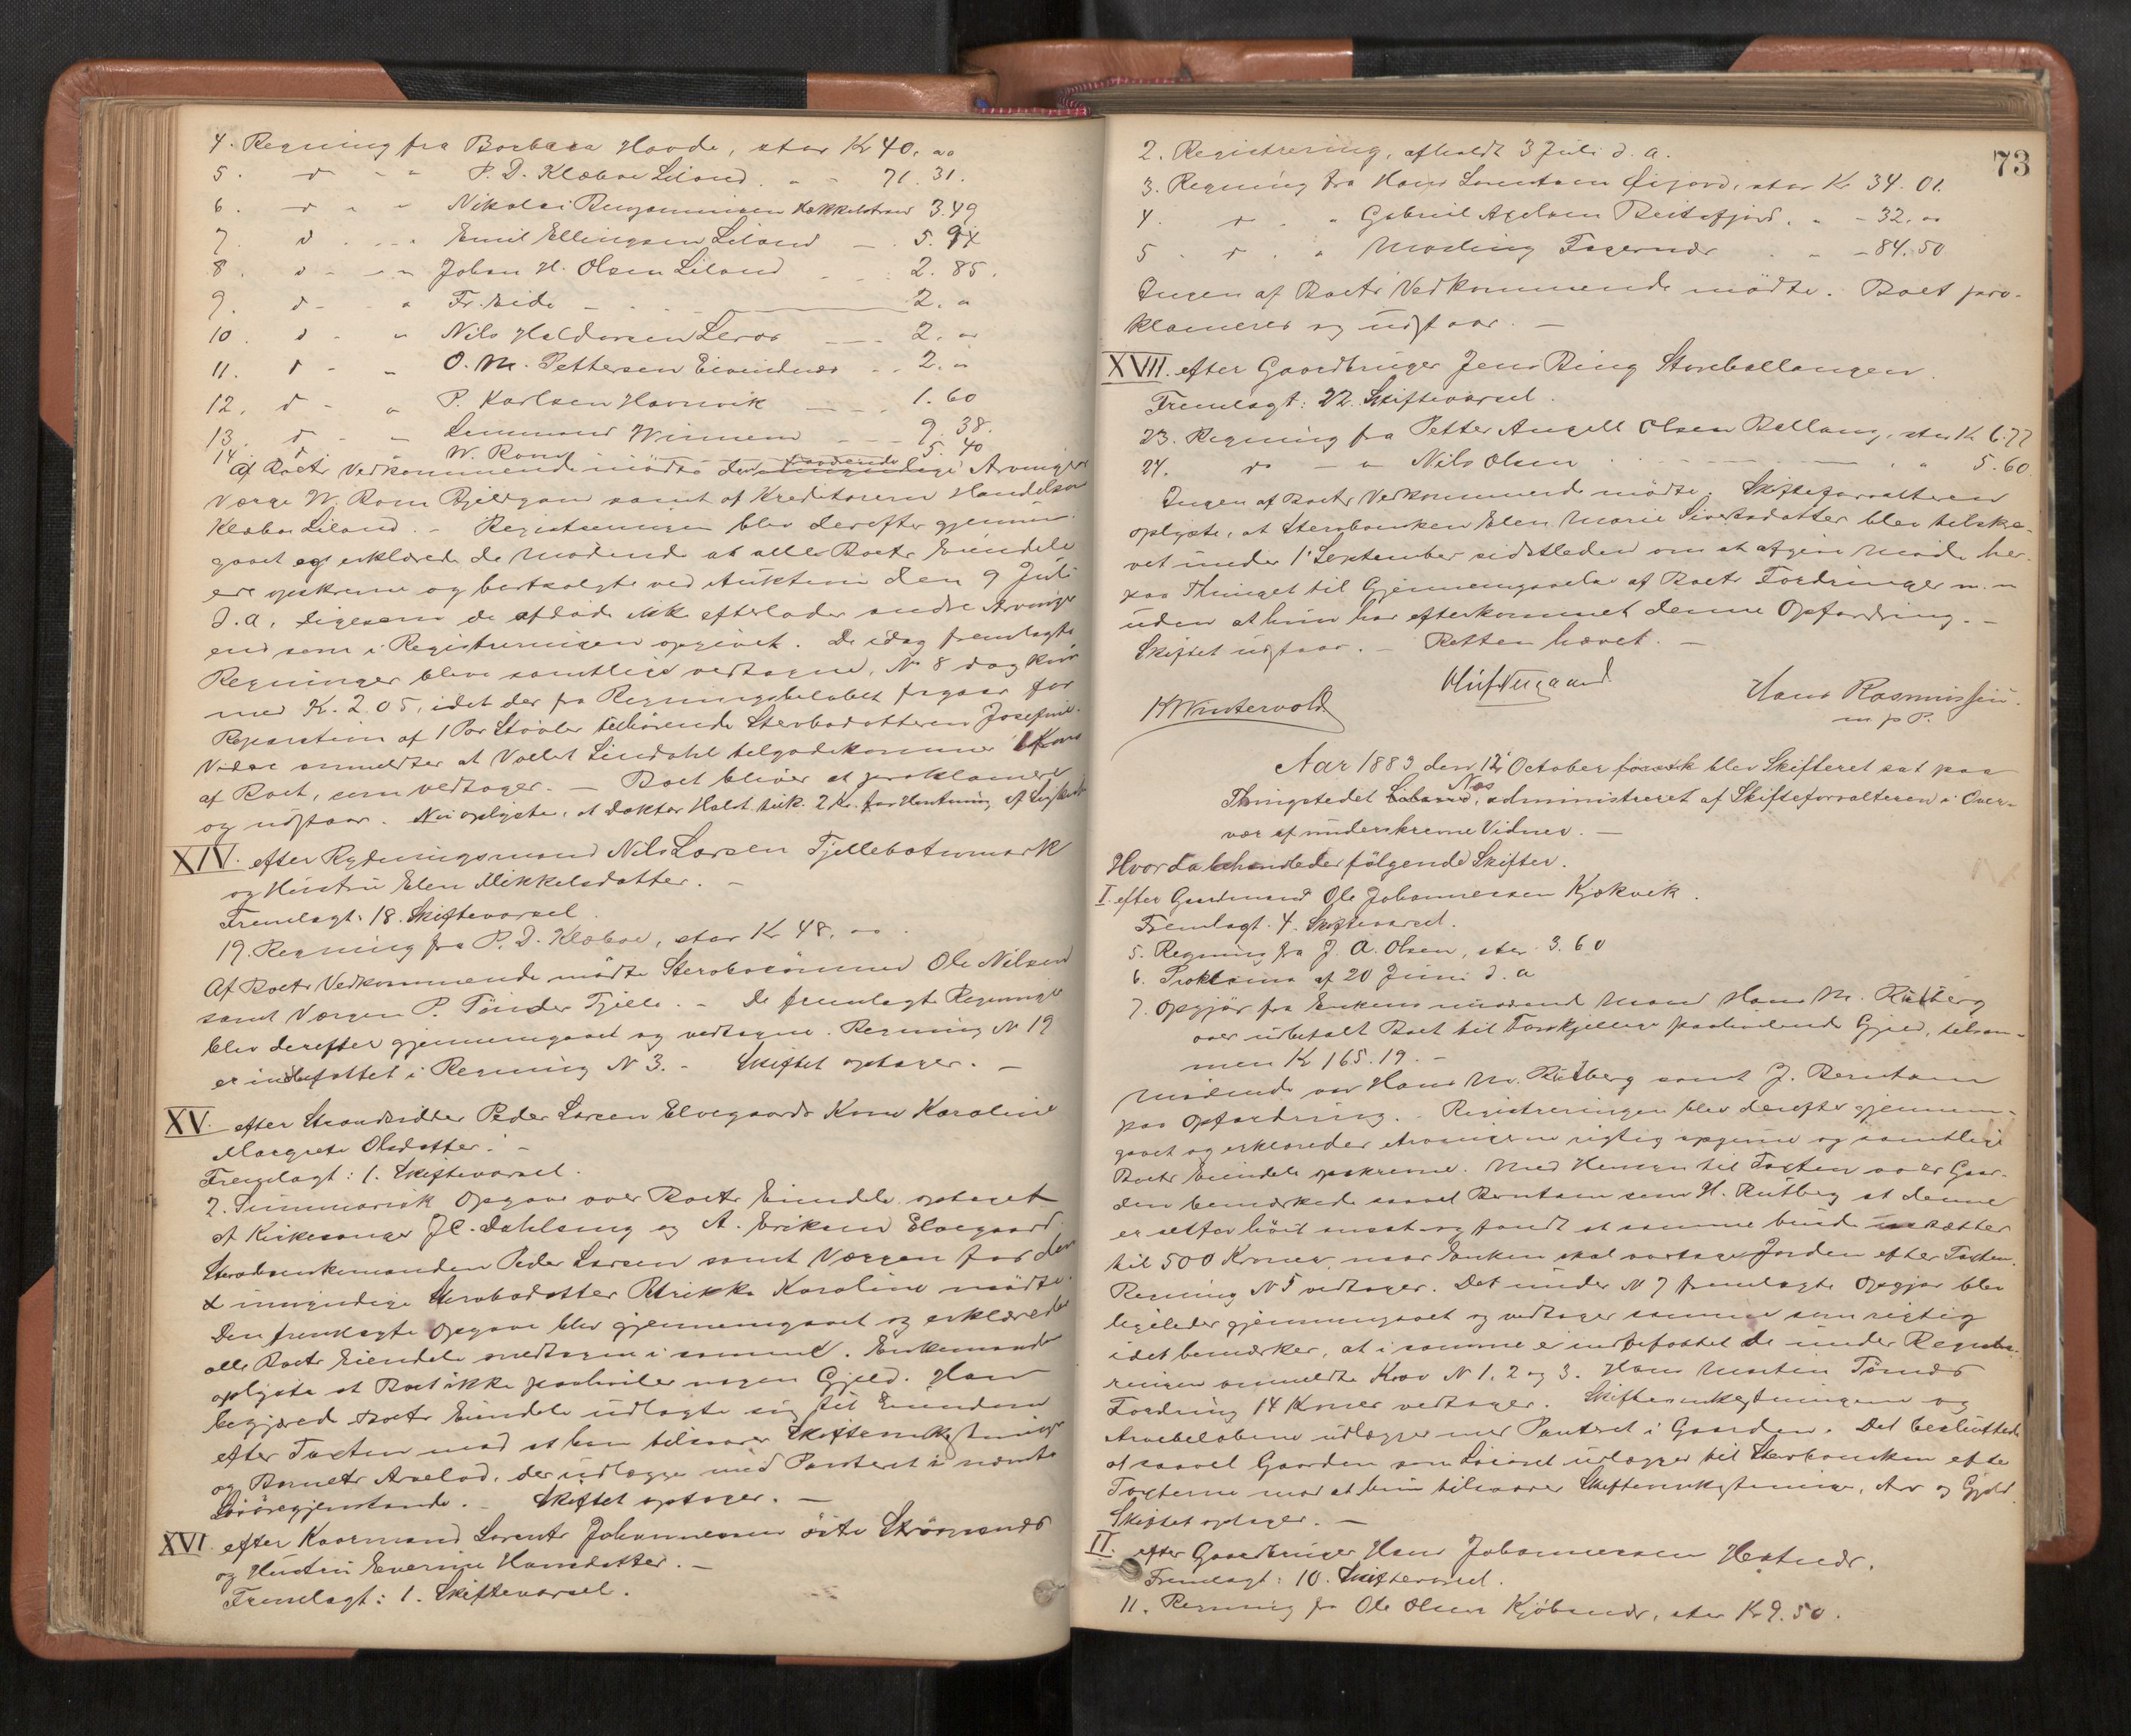 4. Regning fra Barbara Hovde, stor Kr 40. „„
5. d „ „ P. D. Klæboe Liland „ „ 71. 31.
6. d „ „ Nikolai Benjaminsen Kækkelstrand 3.49
7. d „ „ Emil Ellingsen Liland — 5.94
8. d „ „ Johan H. Olsen Liland 2. 85.
9. d „ „ Fr. Eide 2. „
10. d „ „ Nils Haldorsen Leros 2. „
11. d „ „ O. M. Pettersen Evindnes 2. „
12. d „ „ P. Karlsen Havnvik 1. 60
13. d „ „ Lensmand Winnem 9. 38.
14 d „ W. Rom 5. 40
Af Boets Vedkommende mødte den Arvinges
Værge W. Rom samt af Kreditorerne Handelsm
Klæboe Liland. - Registreringen blev derefter gjennem-
gaaet og erklærede de Mødende at alle Boets Eiendele
ere opskrevne og bortsolgte ved Auktion den 9 Juli
d. a. ligesom de afdøde ikke efterlader andre Arvinger
end som i Registreringen opgivet. De idag fremlagte
Regninger bleve samtlige vedtagne, No 8 dog kun
med Kr. 2.05, idet der fra Regningsbeløbet fragaar for
Reparation af 1 Par Støvler tilhørende Sterbodatteren Josefine.
Videre anmeldtes at Lindahl tilgodekommer Kroner
af Boet, som vedtages. — Boet bliver at proklamere
og udstaar. oplyste, at Doktor Holst fik 2 Kr. for Hentning af
XIV. efter Rydningsmand Nils Larsen Fjellbotnmark
og Hustru Elen Mikkelsdatter. —
Fremlagt: 18. Skiftevarsel
19. Regning fra P. D. Klæboe, stor Kr 48. „„
Af Boets Vedkommende mødte Sterbosønnen Ole Nilsen
samt Værgen P. Tønder Fjelle. - De fremlagte Regninger
blev derefter gjennemgaaet og vedtagne. Regning No 19
er indbefattet i Regning N 3. - Skiftet optages. —
XV. efter Strandsidder Peder Larsen Elvegaards Kone Karoline
Margrete Olsdatter. —
Fremlagt: 1. Skiftevarsel.
2. Summarisk Opgave over Boets Eiendele optaget
af Kirkesanger J. C. Dahlsing og A. Eriksen Elvegaard
Sterboenkemanden Peder Larsen samt Værgen for den
umyndige Sterbodatter Petrikke Karoline mødte.
Den fremlagte Opgave blev gjennemgaaet og erklæredes
alle Boets Eiendele medtagen i samme. Enkemanden
oplyste at Boet ikke paahviler nogen Gjæld. Han
begjæred Boets Eiendele udlagte sig til Eiendom
efter Taxten mod at han tilsvarer Skifteomkostninger
og Barnets Arvelod, der udlægges med Panteret i nævnte
Løsøregjenstande. - Skiftet optages. —
XVI. efter Kaarmand Lorents Johannessen Strømsnes
og Hustru Everine Hansdatter. —
Fremlagt: 1. Skiftevarsel.
73
2. Registrering, afholdt 3 Juli d. a.
3. Regning fra Hans Lorentsen Øijord, stor Kr 34. 01.
4. d „ Gabriel Axelsen Beitsfjord. „ - 32. „
5. d „ „ Mosling Fagernæs - 84.50
Ingen af Boets Vedkommende mødte. Boet pro-
klameres og udstaar. —
XVII. efter Gaardbruger Jens Ring Storeballangen.
Fremlagt: 22. Skiftevarsel.
23. Regning fra Petter Angell Olsen Ballang, stor Kr 6.77
24. do — „ Nils Olsen „ 5.60.
Ingen af Boets Vedkommende mødte. Skifteforvalteren
oplyste, at Sterboenken Elen Marie Sivertsdatter blev tilskre-
vet under 1 September sidstleden om at afgive Møde her
paa Thinget til Gjennemgaaelse af Boets Fordringer m. m
uden at hun har efterkommet denne Opfordring. -
Skiftet udstaar. — Retten hævet. —
Hans Rasmussen.
m. p. P.
Aar 1883 den 12 October blev Skifteret sat paa
Thingstedet Næs, administreret af Skifteforvalteren i Over-
vær af underskrevne Vidner. —
Hvorda behandledes følgende Skifter.
I. efter Gaardmand Ole Johannessen Kjækvik.
Fremlagt. 4. Skiftevarsel.
5. Regning fra J. A. Olsen, stor 3. 60
6. Proklama af 20 Juni d. a
7. Opgjør fra Enkens nuværende Mand Hans M. Rutberg
over udbetalt Boet til Forskjellige paahvilende Gjæld, tilsam-
men Kr 165. 19. —
Mødende var Hans M. Rutberg samt J. Berntsen
paa Opfordring. Registreringen blev derefter gjennem-
gaaet og erklæredes Arvingerne rigtig opgivne og samtlige
Boets Eiendele opskrevne. Med Hensyn til Taxten over Gaar-
den bemærkede saavel Berntsen som H. Rutberg at denne
er altfor høit ansat og fandt at samme burde nedsættes
til 500 Kroner, naar Enken skal overtage Jorden efter Taxten.
Regning N 5 vedtages. Det under N 7 fremlagte Opgjør blev
ligeledes gjennemgaaet og vedtages samme som rigtig
idet bemærkes, at i samme er indbefattet de under Registre-
ringen anmeldte Krav N 1, 2 og 3. Hans Morten Tømes
Fordring 14 Kroner vedtages. Skifteomkostningerne og
Arvebeløbene udlægges med Panteret i Gaarden. Det besluttedes
at saavel Gaarden som Løsøret udlægges til Sterboenken efter
Taxterne mod at hun tilsvarer Skifteomkostninger, Arv og Gjæld.
Skiftet optages. —
II. efter Gaardbruger Hans Johannessen Hestnæs.
Fremlagt: 10. Skiftevarsel.
11. Regning fra Ole Olsen Kjøbsnæs, stor Kr 9. 50.